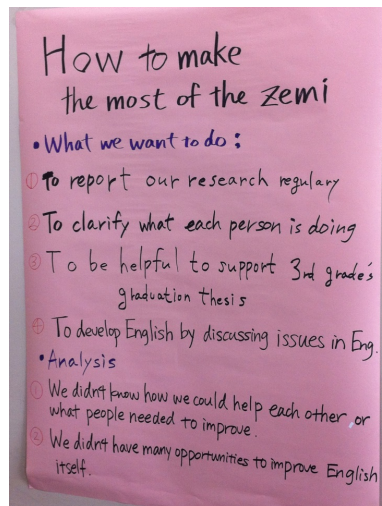 How to make
the most of the zemi
• What we want to do:
① To report our research regulary
② To clarify what each person is doing
③ To be helpful to support 3rd grade's
graduation thesis
④ To develop English by discussing issues in Eng.
• Analysis
① We didn't know how we could help each other, or
what people needed to improve.
② We didn't have many opportunities to improve English
itself.